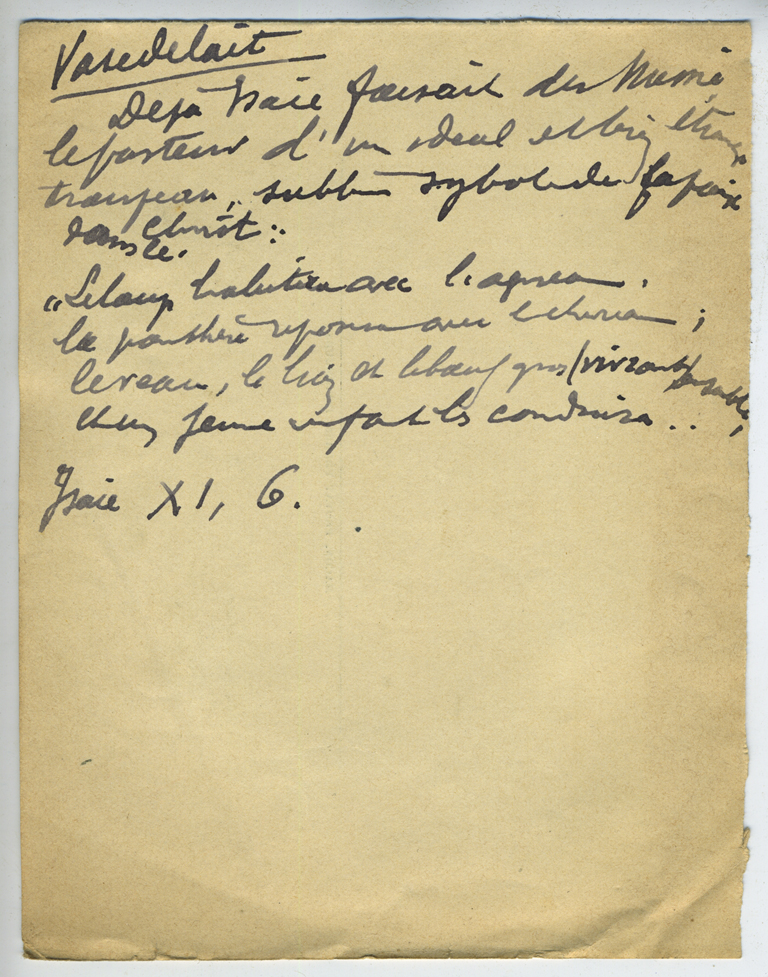 Vase de lait
Déjà Isaie faisait du Messie
le pasteur d'un idéal et bien étrange
troupeau, sublim sybole de la paix
dans le Christ :
"Le loup habitera avec l'agneau.
la panthère reposera avec le chevreau ;
le veau, le lion et le bœuf gras (vivront ensemble,
et un jeune enfant les conduira ..
Isaie XI, 6.